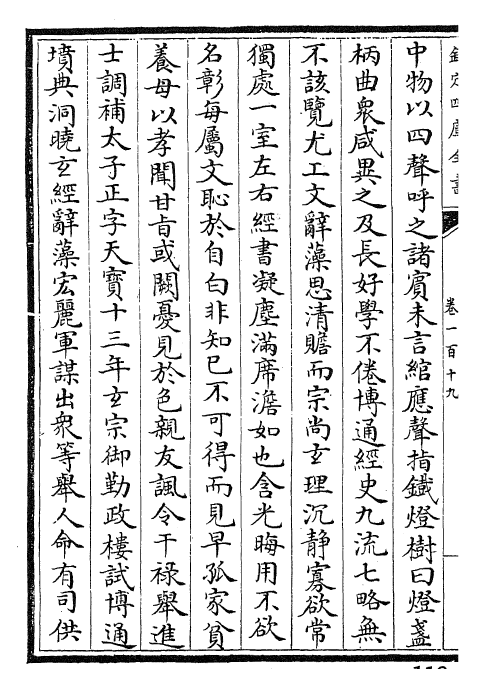 欽定四庫全書
卷一百十九
中物以四聲呼之諸賓未言綰應聲指鐵燈樹曰燈盞
柄曲衆咸異之及長好學不倦博通經史九流七略無
不該覽尤工文辭藻思清贍而宗尚玄理沉静寡欲常
獨處一室左右經書凝塵滿席澹如也含光晦用不欲
名彰每屬文恥於自白非知已不可得而見早孤家貧
養母以孝聞甘旨或闕憂見於色親友諷令干祿舉進
士調補太子正字天寶十三年玄宗御勤政樓試博通
墳典洞曉玄經辭藻宏麗軍謀出衆等舉人命有司供